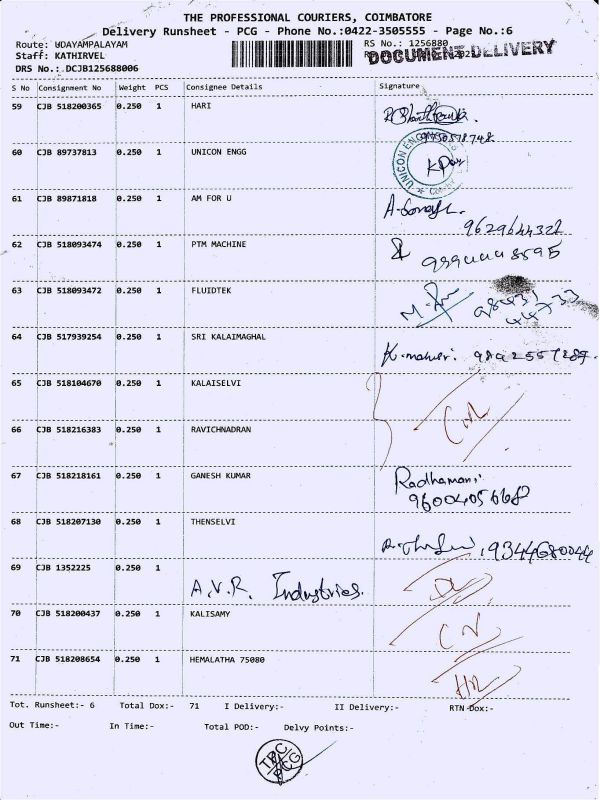 THE PROFESSIONAL COURIERS, COIMBATORE
Delivery Runsheet - PCG - Phone No.:0422-3505555 - Page No.:6
Route: UDAYAMPALAYAM
RS No.: 1256880
Staff: KATHIRVEL
DOCUMENT DELIVERY
DRS No.: DCJB125688006
S No Consignment No Weight PCS Consignee Details Signature
59 CJB 518200365 0.250 1 HARI
60 CJB 89737813 0.250 1 UNICON ENGG
UNICON EN
61 CJB 89871818 0.250 1 AM FOR U
9629644322
62 CJB 518093474 0.250 1 PTM MACHINE
63 CJB 518093472 0.250 1 FLUIDTEK
64 CJB 517939254 0.250 1 SRI KALAIMAGHAL
65 CJB 518104670 0.250 1 KALAISELVI
66 CJB 518216383 0.250 1 RAVICHNADRAN
67 CJB 518218161 0.250 1 GANESH KUMAR Radhamani
9600405668
68 CJB 518207130 0.250 1 THENSELVI
9344680044
69 CJB 1352225 0.250 1 A.V.R. Industries.
70 CJB 518200437 0.250 1 KALISAMY
71 CJB 518208654 0.250 1 HEMALATHA 75080
Tot. Runsheet:- 6 Total Dox:- 71 I Delivery:- II Delivery:- RTN Dox:-
Out Time:- In Time:- Total POD:- Delvy Points:-
TPC
PCG